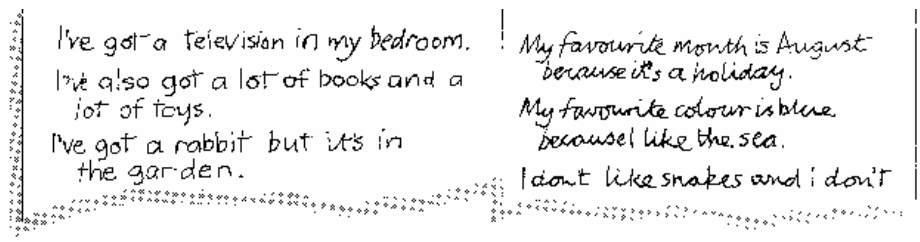 I've got a television in my bedroom.
I've also got a lot of books and a
lot of toys.
I've got a rabbit but it's in
the garden.
My favourite month is August
because it's a holiday.
My favourite colour is blue
because I like the sea.
I don't like snakes and i don't